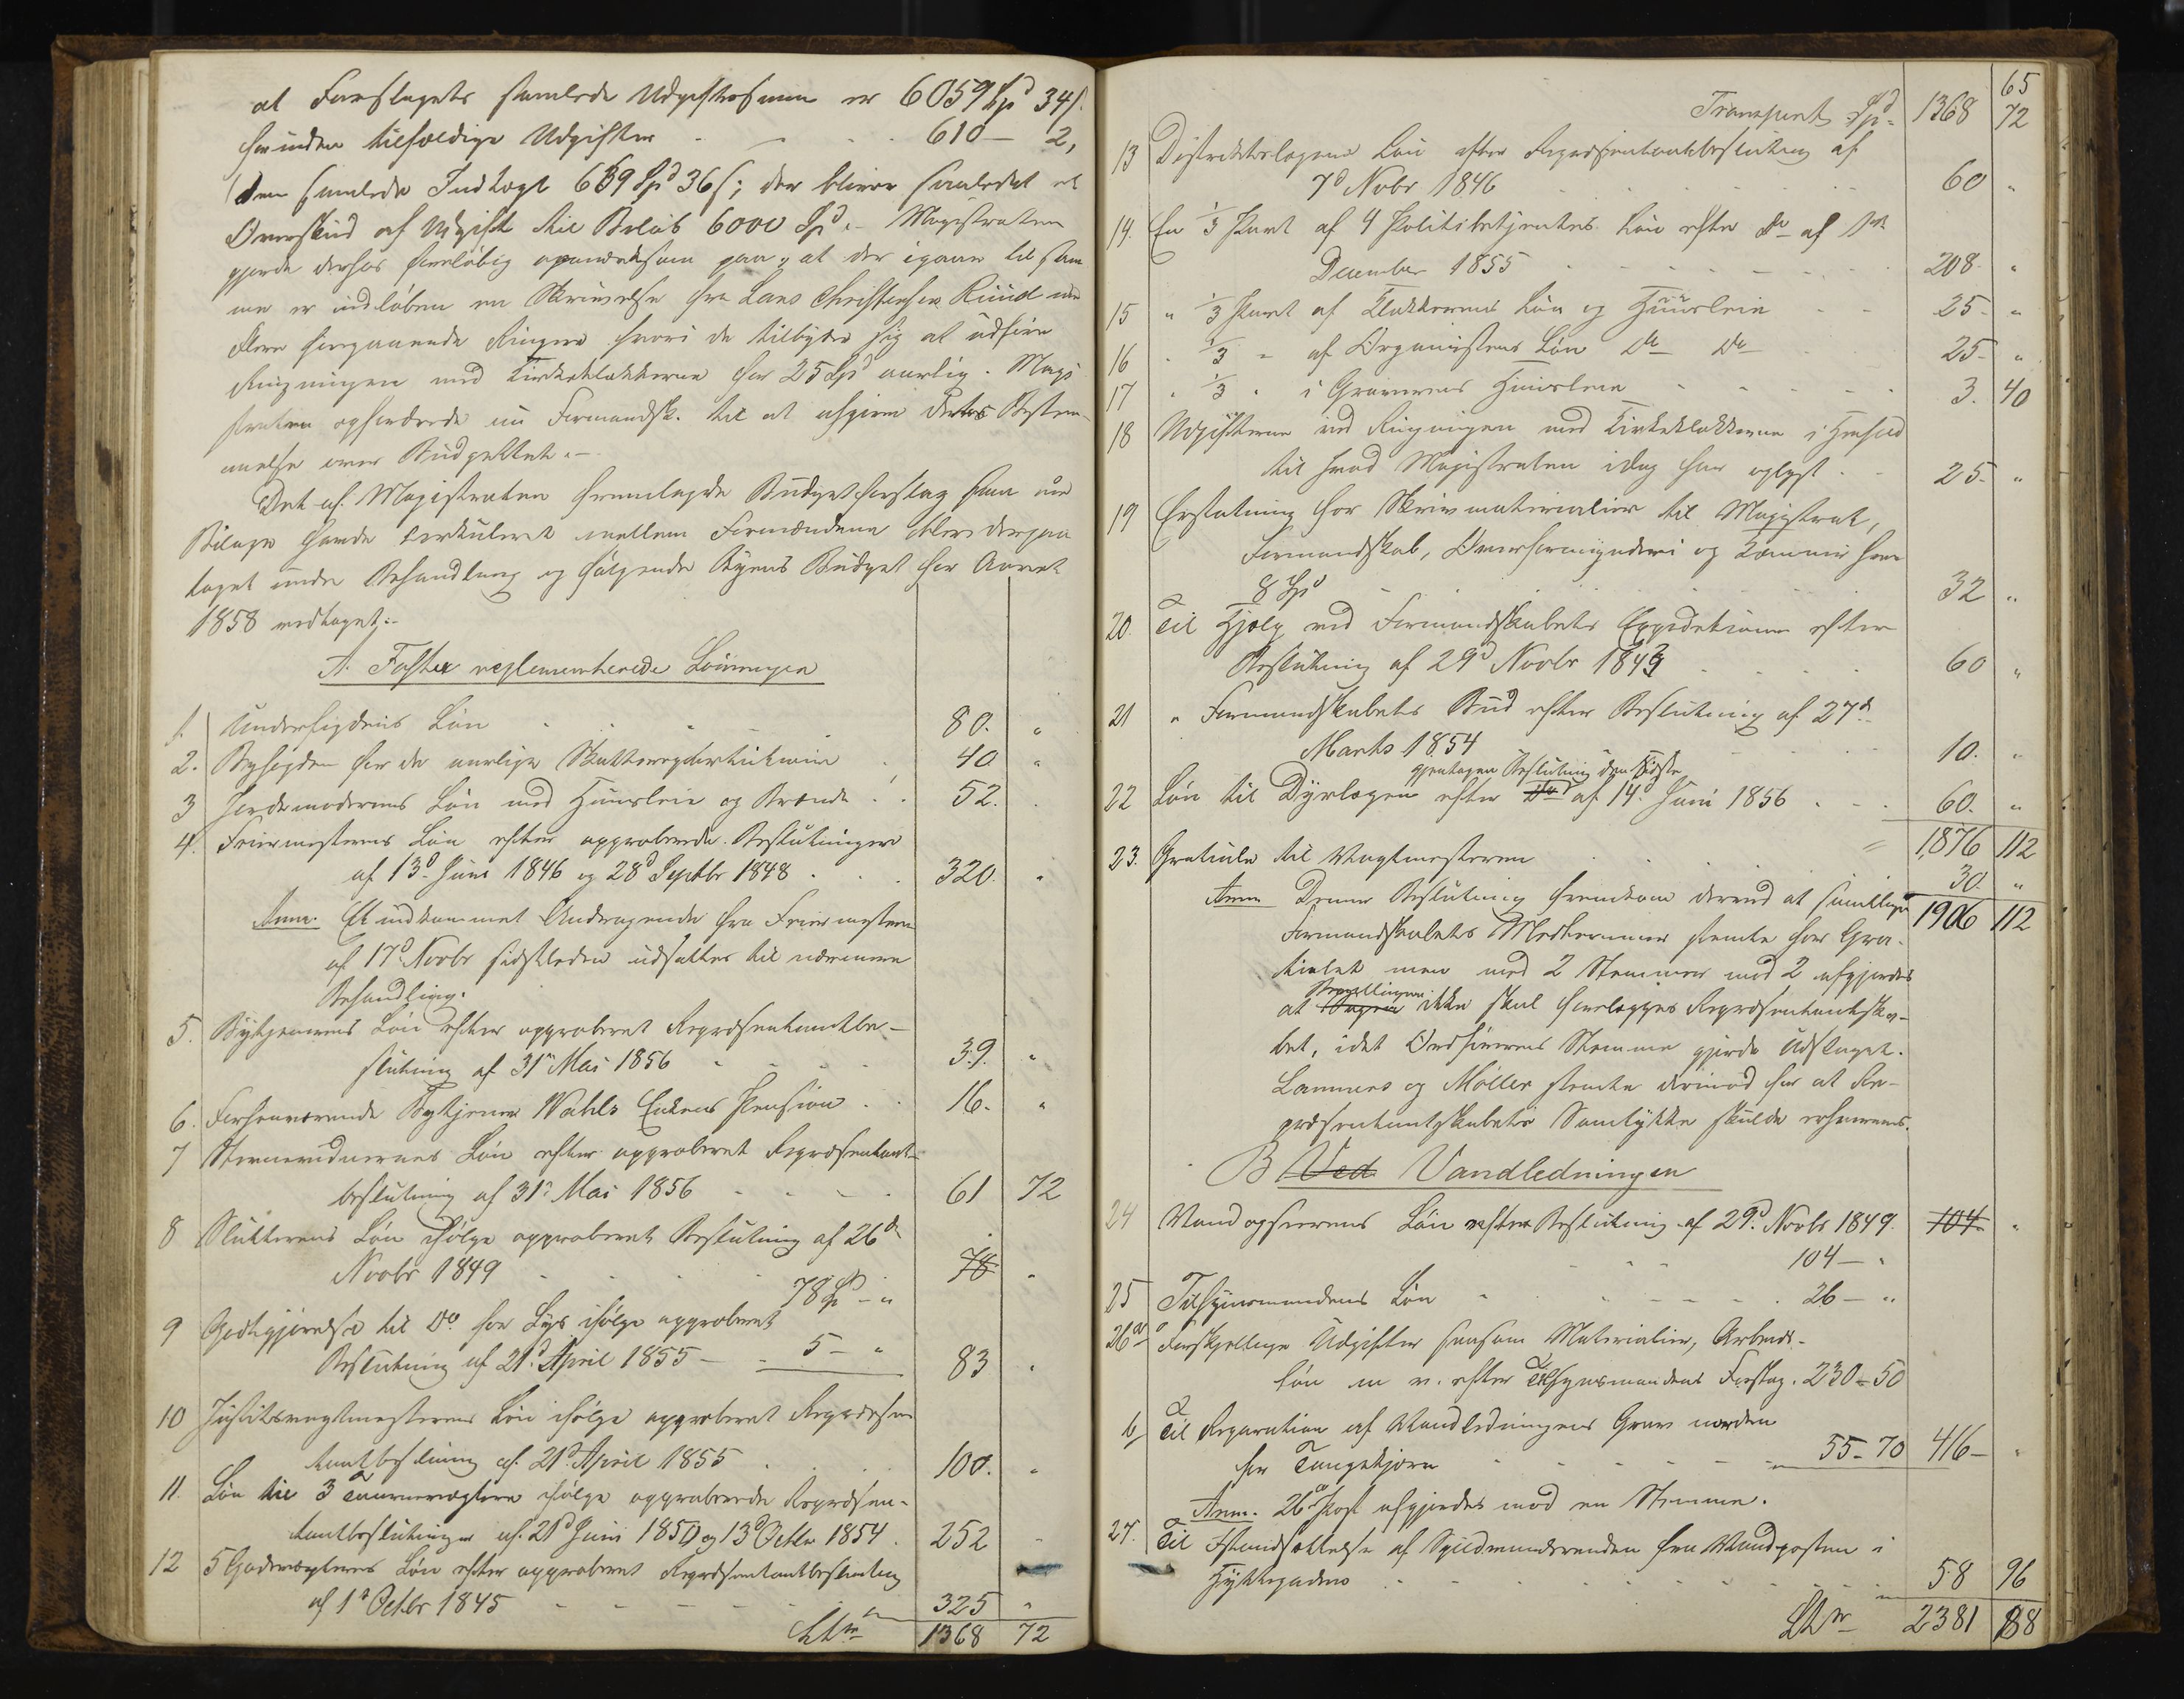 at Forslagets samlede Udgiftssum er 6059 Spd 34 s.
foruden tilfældige Udgifter - - - 610 - 2,
den samlede Indtægt 659 Spd 36 s; der bliver saaledes et
Overskud af Udgift til Beløb 6000 Spd. - Magistraten
gjorde derhos foreløbig opmærksom paa, at der igaar til sam
me er indløben en Skrivelse fra Lars Christensen Ruud med
flere forrige Ringere hvori de tilbyder sig at udføre
Ringningen med Kirkeklokkerne for 25 Spd aarlig. Magi
straten opfordrede nu Formandsk. til at afgive dets Bestem-
melse over Budgettet. -
Det af Magistraten fremlagte Budgetforslag som med
Bilage havde cirkuleret mellem Formændene blev derpaa
taget under Behandling og følgende Byens Budget for Aaret
1858 vedtaget:-
A. Faste reglementerede Lønninger
1. Underfogdens Løn - - - 80. "
2. Byfogden for de aarlige Skatteregister - 40 "
3 Jordemoderens Løn med Huusleie og Brænde . . 52.
4. Feiermesterens Løn efter approberede Beslutninger
af 13d Juni 1846 og 28d Septbr 1848 . . . 320. "
Anm. Et indkommet Andragende fra Feiermesteren
af 17d Novbr sidstleden udsættes til nærmere
Behandling.
5. Bytjenerens Løn efter approberet Repræsentantbe-
slutning af 31te Mai 1856 - - - 39. "
6. Forhenværende Bytjener Wahls Enkes Pension . . 16. "
7 Stevnevidnernes Løn efter approberet Repræsentant-
beslutning af 31te Mai 1856 - - - - 61 72
8 Slutterens Løn ifølge approberet Beslutning af 26de
Novbr 1849 - - - 78 Spd - " 78 "
9 Godtgjørelse til Do for Lys ifølge approberet
Beslutning af 21d April 1855 - - 5 - " 83 "
10 Justitsvagtmesterens Løn ifølge approberet Repræsen
tantbeslutning af 21de April 1855 . . . 100. "
11. Løn til 3 Taarnvægtere ifølge approberede Repræsen-
tantbeslutninger af 21d Juni 1851 og 13d Octbr 1854 . 252 "
12 5 Gadevægteres Løn efter approberet Repræsentantbeslutning
af 1d Octbr 1845 - - - - 325 "
Lts 1368 72
65
Transport Spd. 1368 72
13 Distriktslægens Løn efter Repræsentantbeslutning af
7d Nobr 1846 - - - - 60 "
14. En 1/3 Part af 4 Politibetjentes Løn efter do af 1ste
December 1855 - - - - 208. "
15 " 1/3 Part af Klokkerens Løn og Huusleie - - 25. "
16 " 1/3 " af Organistens Løn do do 25. "
17 " 1/3 " i Graverens Huusleie - - - - 3. 40
18 Udgifterne ved Ringningen med Kirkeklokkerne i Henhold
til hvad Magistraten idag har oplyst - - 25. "
19 Erstatning for Skrivmaterialier til Magistrat,
Formandskab, Overformynderi og Kæmner hver
8 Spd - - - 32 "
20. Til Hjælp ved Formandskabets Expeditioner efter
Beslutning af 29d Novbr 1849 . . . 60 "
21 " Formandskabets Bud efter Beslutning af 27de
Marts 1854 - - - 10. "
gjentagen Beslutning den sidste
22 Løn til Dyrlægen efter Do af 14d Juni 1856 . - . 60. "
1876 112
23. Gratiale til Vagtmesteren . . . 30. "
1906 112
Anm Denne Beslutning fremkom derved at samtlige
Formandskabets Medlemmer stemte for Gra-
tialet men med 2 Stemmer mod 2 afgjordes
Bevillingen
at Sagen ikke skal forelægges Repræsentantska-
bet, idet Ordførerens Stemme gjorde Udslaget.
Lammers og Møller stemte derimod for at Re-
præsentantskabets Samtykke skulde erhverves.
B Ved Vandledningen
24 Vandopsynets Løn efter Beslutning af 29d. Novbr 1849. 104. "
- - - 104 - "
25 Tilsynsmandens Løn - - - - - - 26 - "
26 a Forskjellige Udgifter saasom Materialier, Arbeids-
løn m v. efter Tilsynsmandens Forslag. 230 - 50
b, Til Reparation af Vandledningens Grav norden
for Tangekjern - - - - - 55 - 70 416 - "
Anm. 26 a Post afgjordes mod en Stemme.
27. Til Istandsættelse af Spildevandsrenden fra Vandposten i
Hyttegaden - - - - - - 58 96
Lts 2381 88